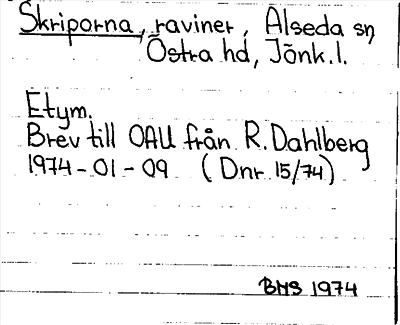 Skriporna, raviner, Alseda sn
Östra hd, Jönk.l.
Etym.
Brev till OAU från R. Dahlberg
1974-01-09 (Dnr 15/74)
BMS 1974